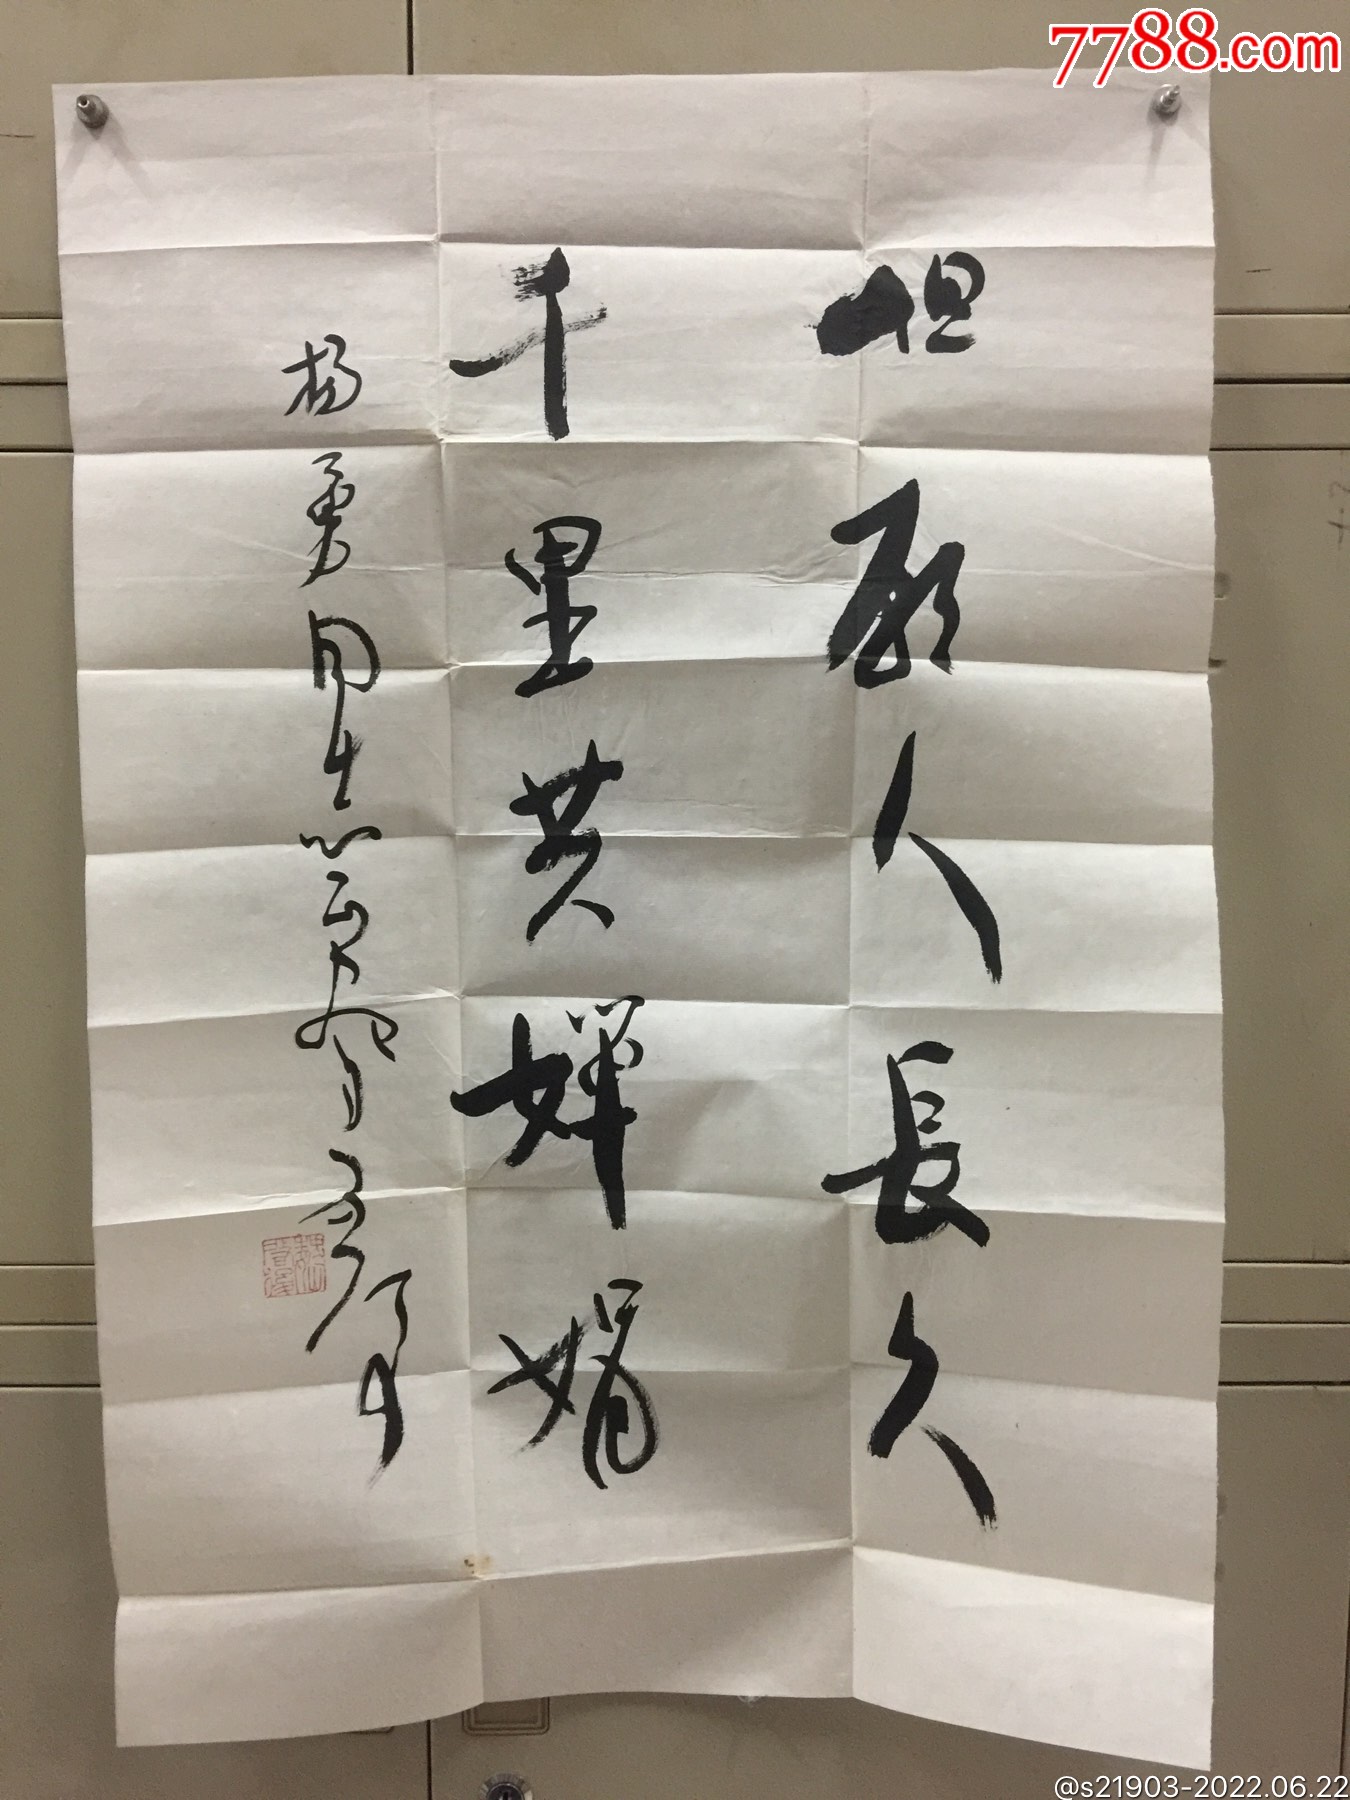 7788.com
但願人長久
千里共嬋娟
杨勇同志
@s21903-2022.06.22